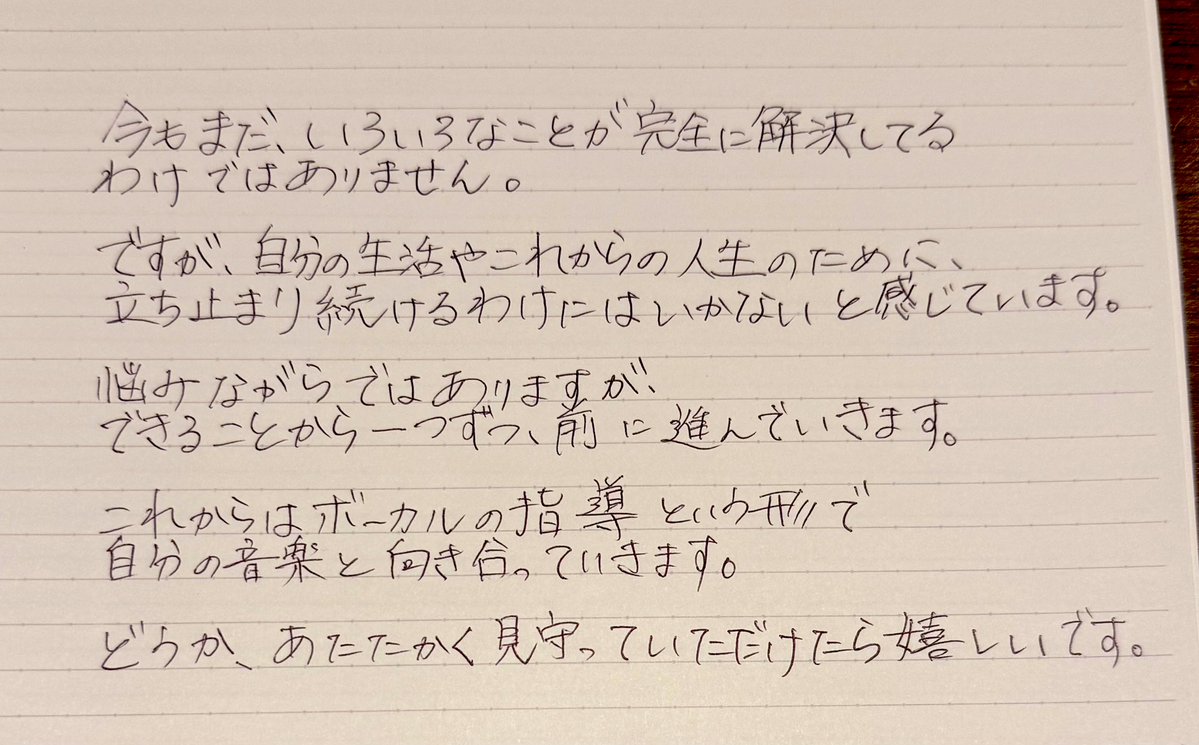 今もまだ、いろいろなことが完全に解決してる
わけではありません。
ですが、自分の生活やこれからの人生のために、
立ち止まり続けるわけにはいかないと感じています。
悩みながらではありますが、
できることから一つずつ、前に進んでいきます。
これからはボーカルの指導という形で
自分の音楽と向き合っていきます。
どうか、あたたかく見守っていただけたら嬉しいです。